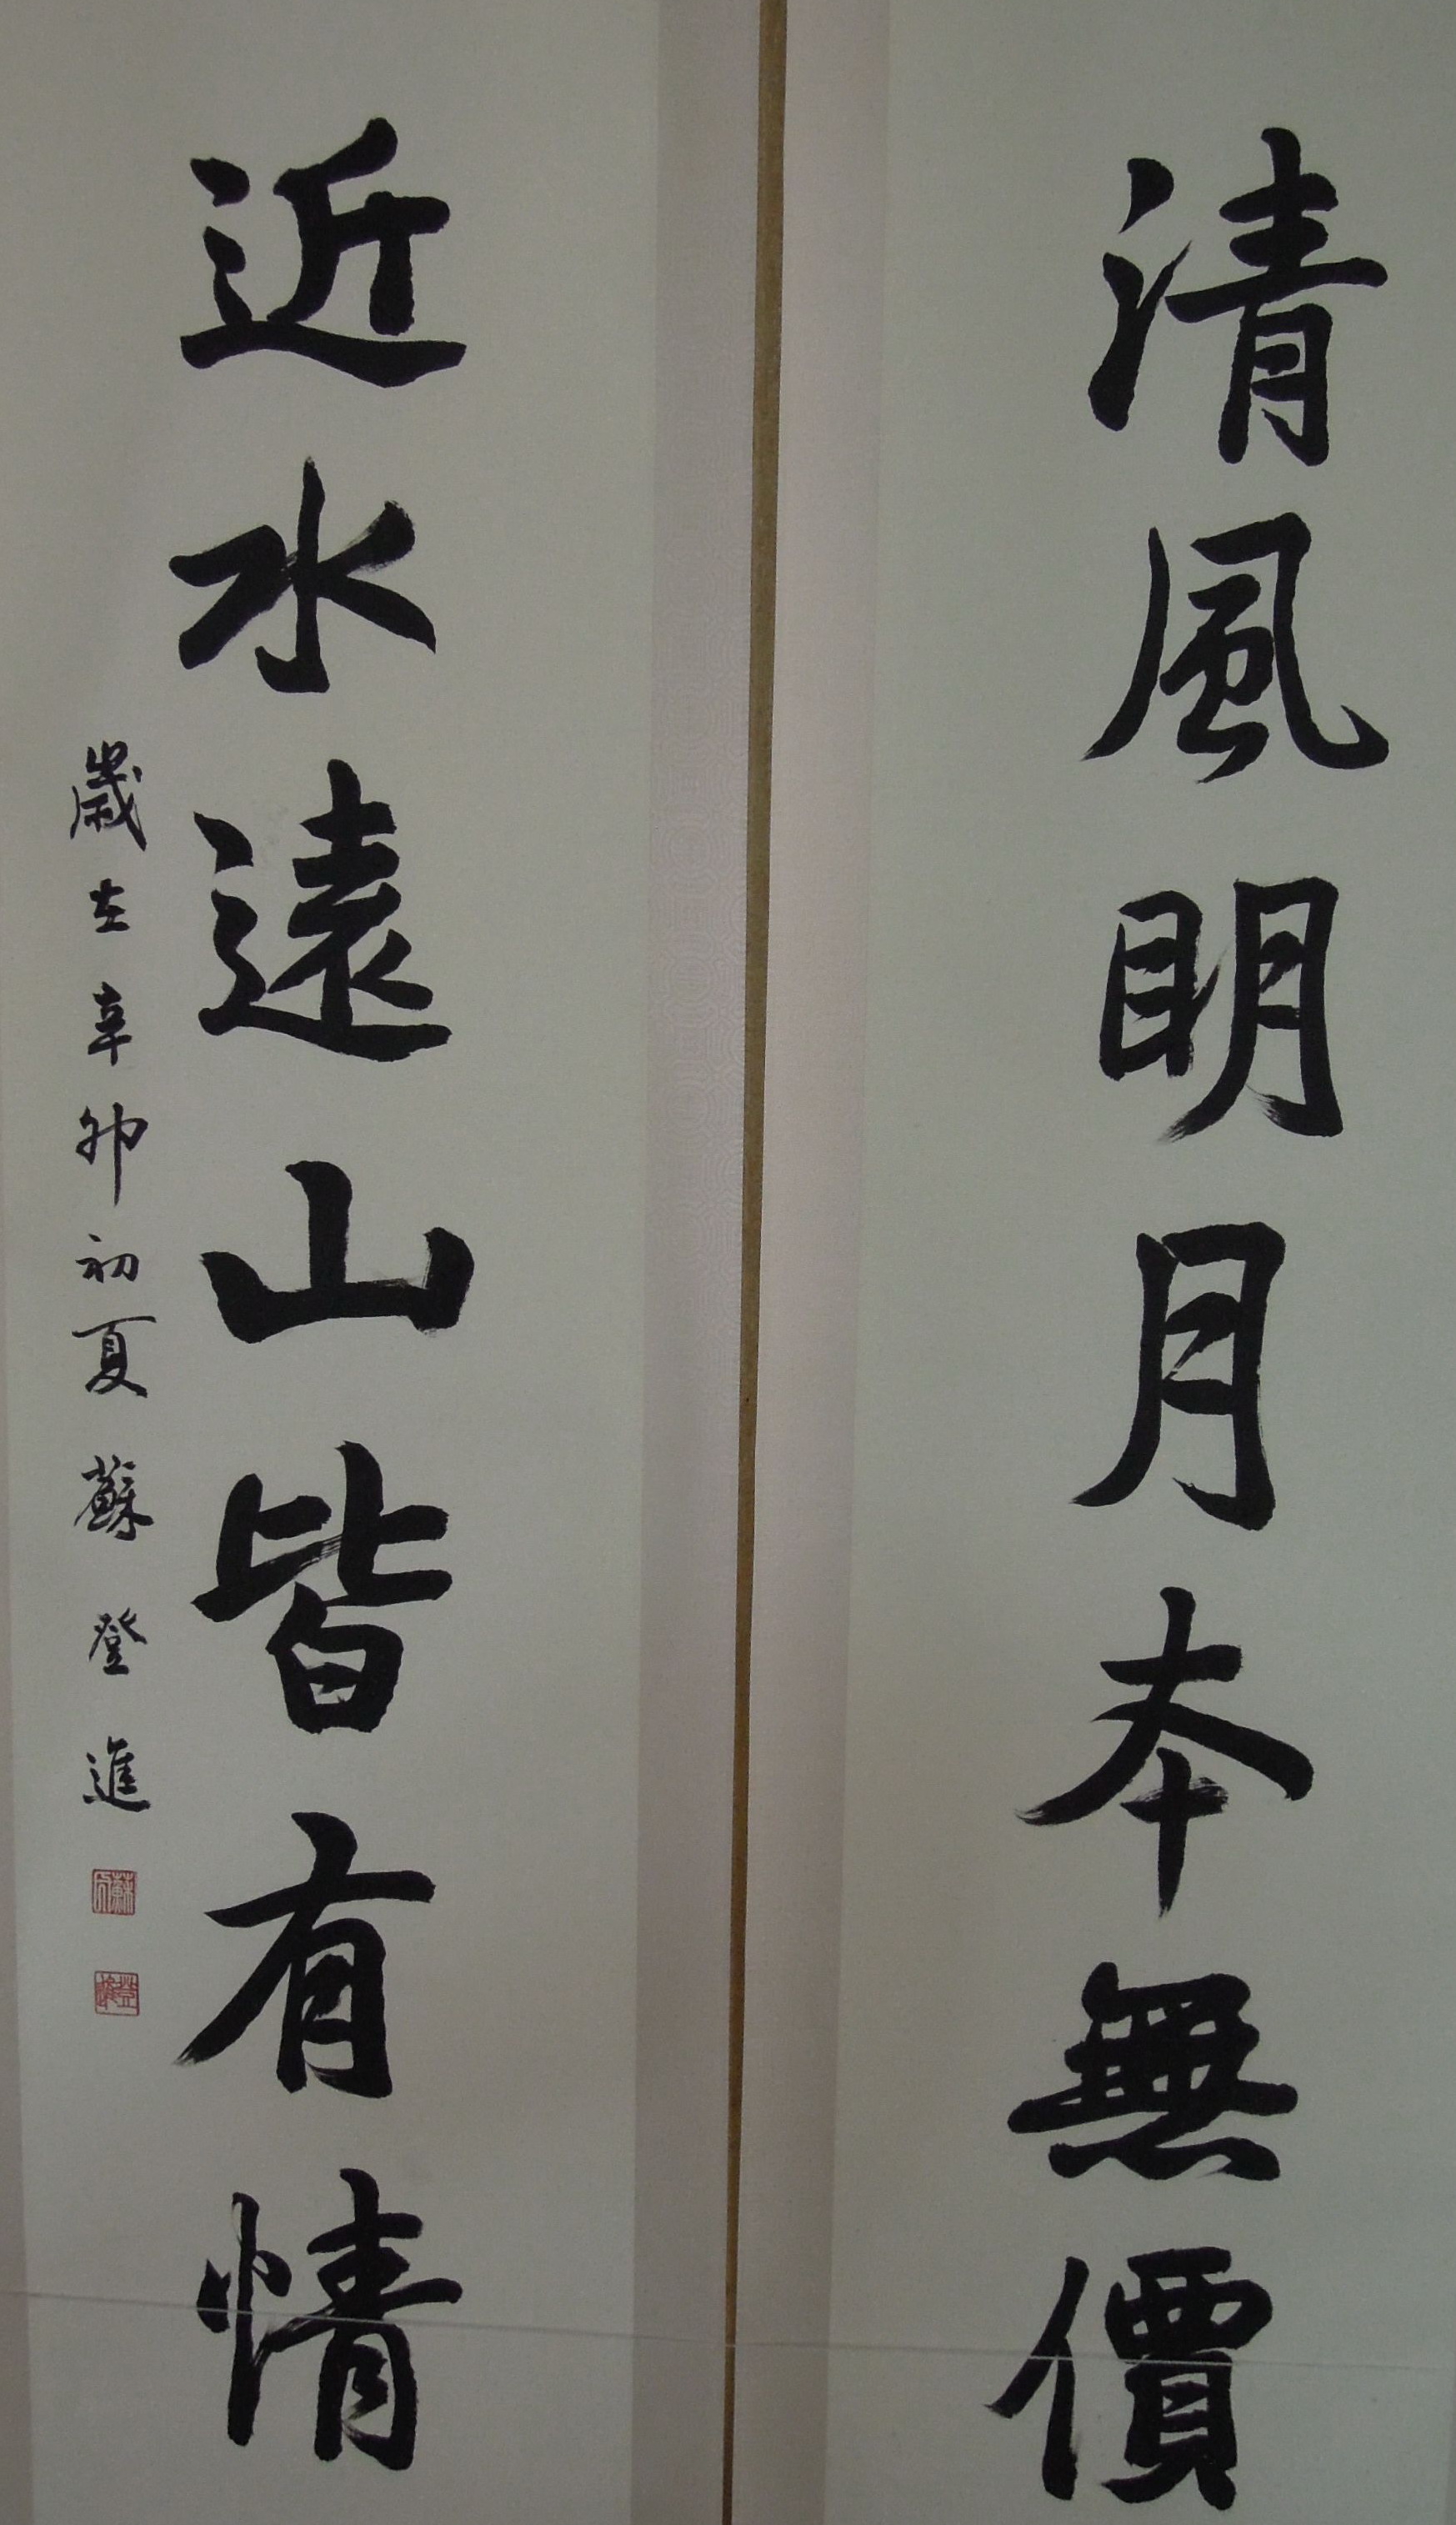 清風明月本無價
近水遠山皆有情
歲在辛卯初夏蘇登進